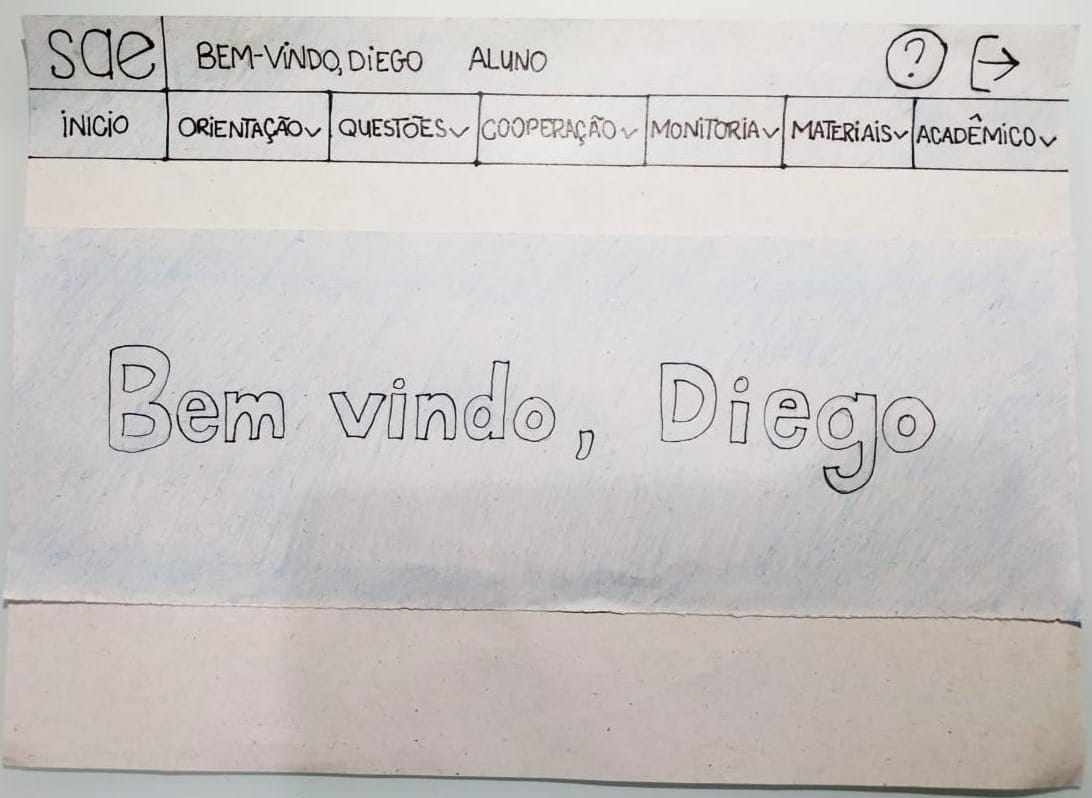 sae BEM-VINDO, DIEGO ALUNO ?
INICIO ORIENTAÇÃO QUESTÕES COOPERAÇÃO MONITORIA MATERIAIS ACADÊMICO
Bem vindo, Diego